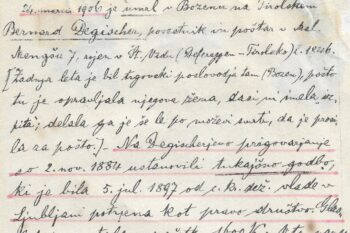 24. marca 1906 je umrl v Bozenu na Tirolskem
Bernard Degischer, posestnik in poštar v Mal.
Mengšu 7, rojen v St. Vidu (Defreggen-Tirolsko) l. 1846.
[Zadnja leta je bil trgovski poslovodja tam (Bozen), pošto
tu je opravljala njegova žena, dasi ni imela
; delala ga je še le po moževi smrti, da je prosi
la za pošto.] - Na Degischerjevo prigovarjanje
so 2. nov. 1884 ustanovili tukajšno godbo,
ki je bila 5. jul. 1897 od c. kr. dež. vlade v
Ljubljani potrjena kot pravo društvo.